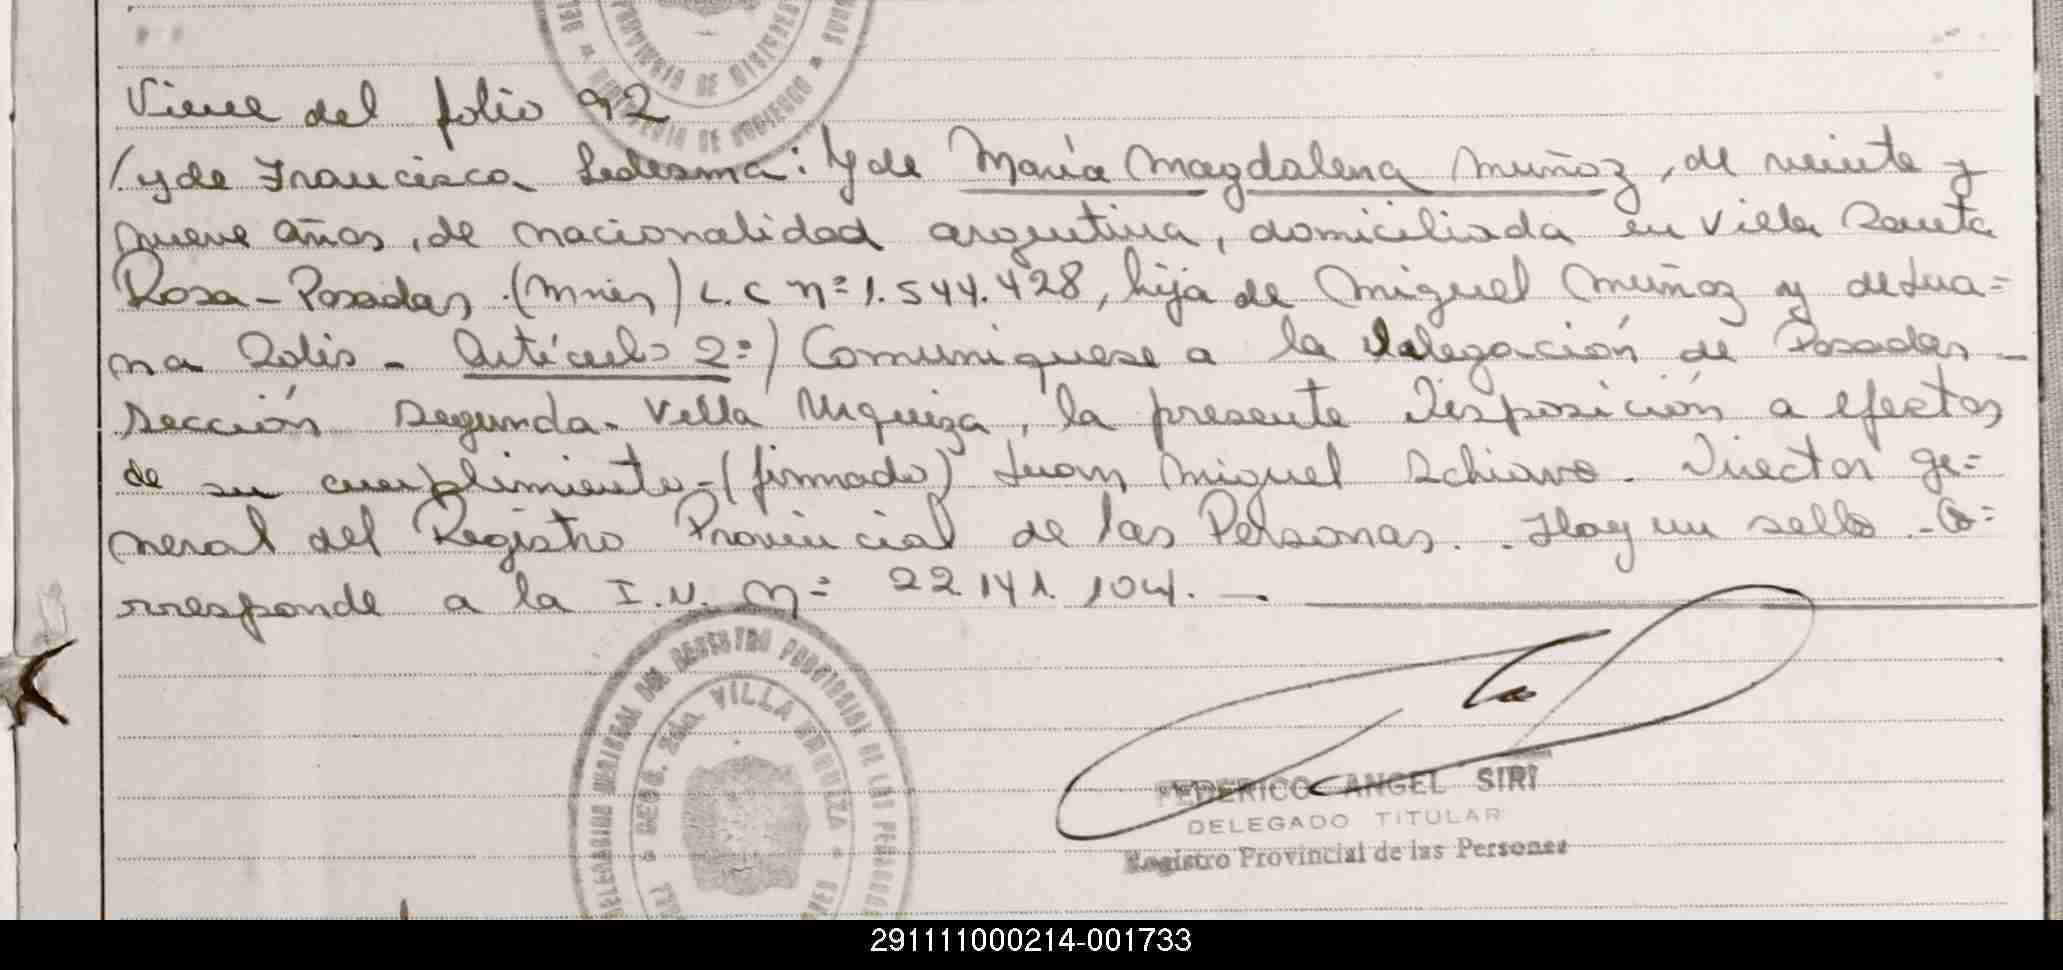 Viene del folio 92
/y de Francisca Ledesma: Y de María Magdalena Muñoz, de veinte y
nueve años, de nacionalidad argentina, domiciliada en Villa Santa
Rosa - Posadas (Mnes) L.C nº 1.544.428, hija de Miguel Muñoz y de Jua=
na Solis - Artículo 2º) Comuníquese a la Delegación de Posadas -
Sección Segunda - Villa Urquiza, la presente Disposición a efectos
de su cumplimiento - (firmado) Juan Miguel Schiavo. Director ge=
neral del Registro Provincial de las Personas. . Hay un sello. - Co=
rresponde a la I.N. Nº 22.141.104. -.
DELEGACION DEL REGISTRO PROVINCIAL DE LAS PERSONAS
SECC. 2da. VILLA URQUIZA
FEDERICO ANGEL SIRI
DELEGADO TITULAR
Registro Provincial de las Personas
291111000214-001733